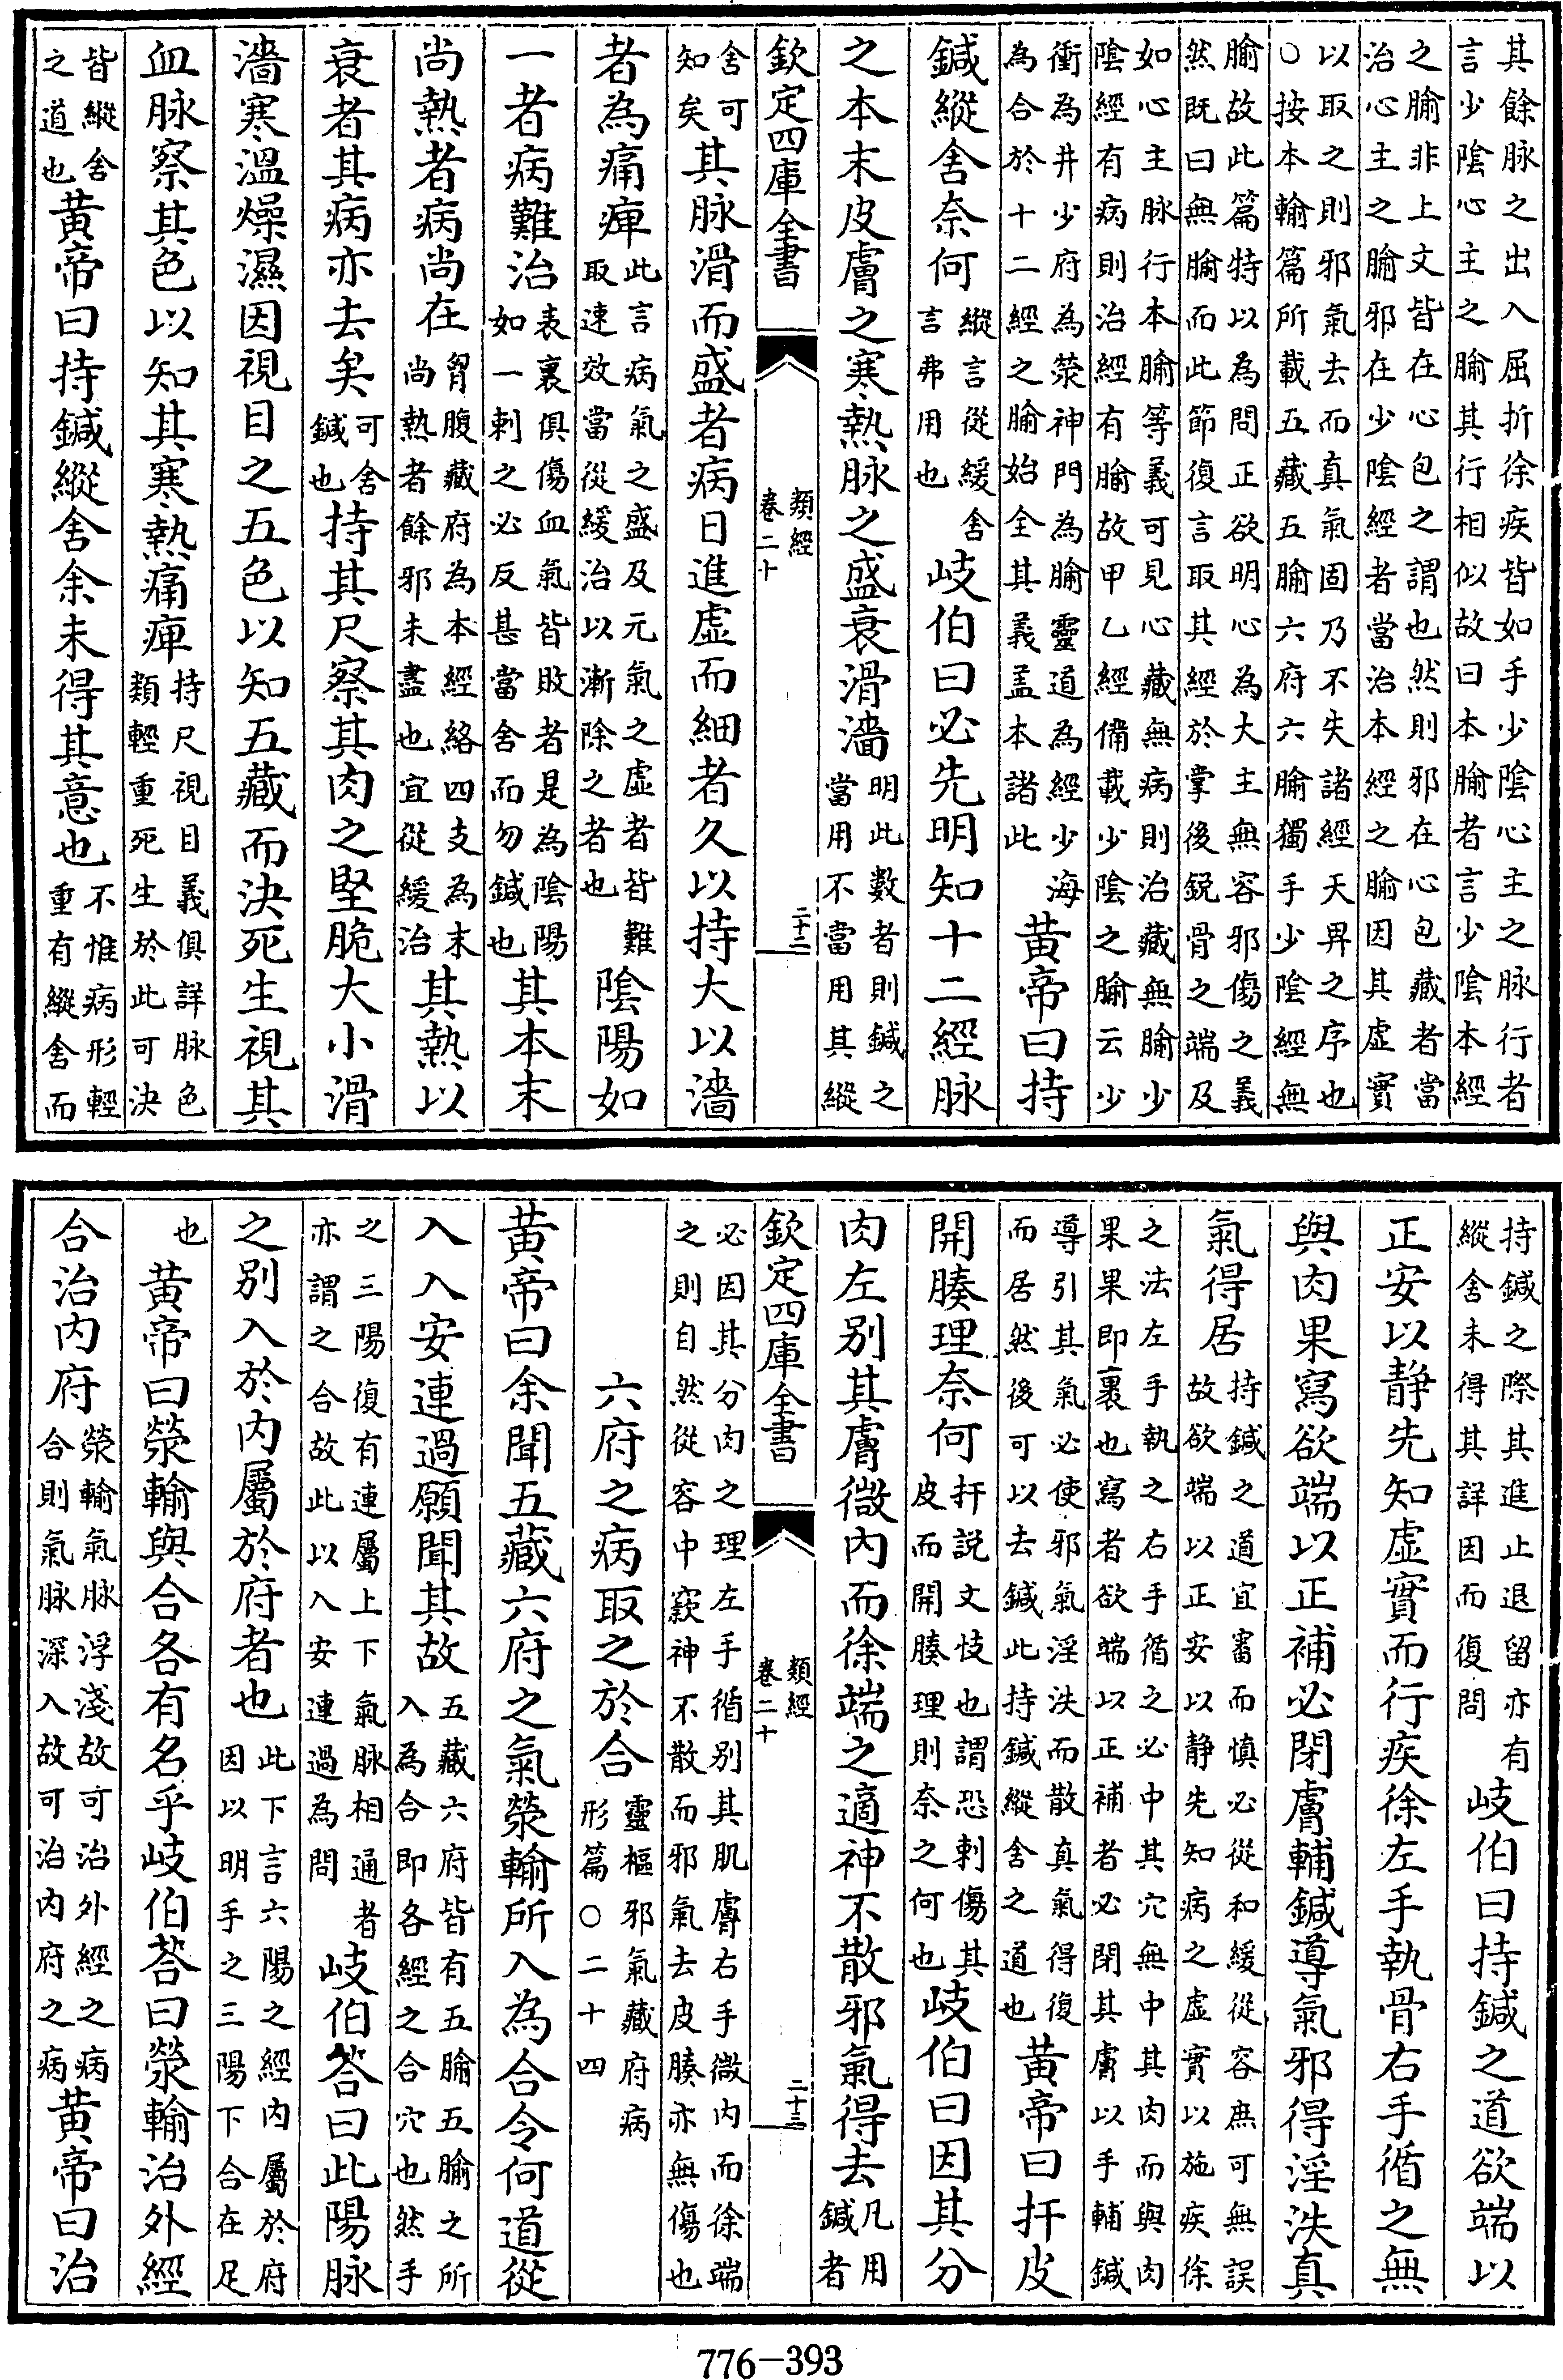 其餘脉之出入屈折徐疾皆如手少陰心主之脉行者
言少陰心主之腧其行相似故曰本腧者言少陰本經
之腧非上文皆在心包之謂也然則邪在心包藏者當
治心主之腧邪在少陰經者當治本經之腧因其虛實
以取之則邪氣去而真氣固乃不失諸經天畀之序也
○按本輸篇所載五藏五腧六府六腧獨手少陰經無
腧故此篇特以為問正欲明心為大主無容邪傷之義
然既曰無腧而此節復言取其經於掌後銳骨之端及
如心主脉行本腧等義可見心藏無病則治藏無腧少
陰經有病則治經有腧故甲乙經備載少陰之腧云少
衝為井少府為滎神門為腧靈道為經少海
為合於十二經之腧始全其義盖本諸此黄帝曰持
鍼縱舍奈何縱言從緩舍言弗用也岐伯曰必先明知十二經脉
之本末皮膚之寒熱脉之盛衰滑濇明此數者則鍼之當用不當用其縱
欽定四庫全書 類經 卷二十 二十二
舍可知矣其脉滑而盛者病日進虛而細者久以持大以濇
者為痛痺此言病氣之盛及元氣之虛者皆難取速效當從緩治以漸除之者也陰陽如
一者病難治表裏俱傷血氣皆敗者是為陰陽如一刺之必反甚當舍而勿鍼也其本末
尚熱者病尚在胷腹藏府為本經絡四支為末尚熱者餘邪未盡也宜從緩治其熱以
衰者其病亦去矣可舍鍼也持其尺察其肉之堅脆大小滑
濇寒溫燥濕因視目之五色以知五藏而決死生視其
血脉察其色以知其寒熱痛痺持尺視目義俱詳脉色類輕重死生於此可決
皆縱舍之道也黄帝曰持鍼縱舍余未得其意也不惟病形輕重有縱舍而
持鍼之際其進止退留亦有
縱舍未得其詳因而復問岐伯曰持鍼之道欲端以
正安以静先知虛實而行疾徐左手執骨右手循之無
與肉果寫欲端以正補必閉膚輔鍼導氣邪得淫泆真
氣得居持鍼之道宜審而慎必從和緩從容庶可無誤故欲端以正安以静先知病之虛實以施疾徐
之法左手執之右手循之必中其穴無中其肉而與肉
果果即裹也寫者欲端以正補者必閉其膚以手輔鍼
導引其氣必使邪氣淫泆而散真氣得復
而居然後可以去鍼此持鍼縱舍之道也黄帝曰扞皮
開腠理奈何扞説文忮也謂恐刺傷其皮而開腠理則奈之何也岐伯曰因其分
肉左別其膚微内而徐端之適神不散邪氣得去凡用鍼者
欽定四庫全書 類經 卷二十 二十三
必因其分肉之理左手循別其肌膚右手微内而徐端
之則自然從容中窾神不散而邪氣去皮腠亦無傷也
六府之病取之於合靈樞邪氣藏府病形篇○二十四
黄帝曰余聞五藏六府之氣滎輸所入為合令何道從
入入安連過願聞其故五藏六府皆有五腧五腧之所入為合即各經之合穴也然手
之三陽復有連屬上下氣脉相通者
亦謂之合故此以入安連過為問岐伯荅曰此陽脉
之別入於内屬於府者也此下言六陽之經内屬於府因以明手之三陽下合在足
也黄帝曰滎輸與合各有名乎岐伯荅曰滎輸治外經
合治内府滎輸氣脉浮淺故可治外經之病合則氣脉深入故可治内府之病黄帝曰治
776-393